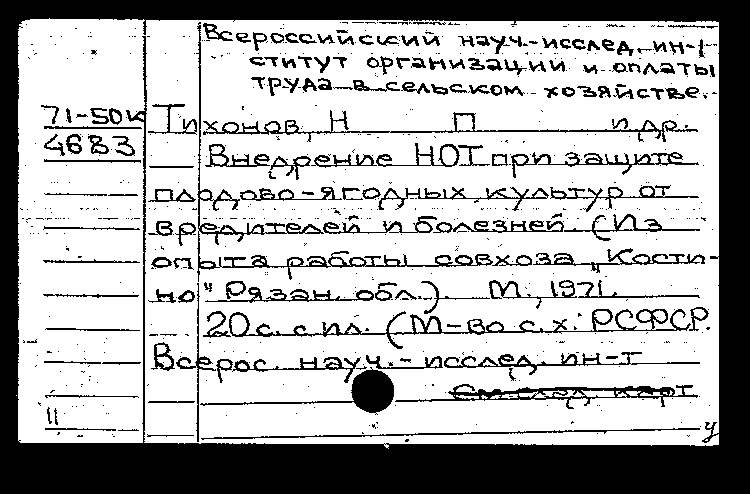 Всероссийский науч.-исслед. ин-
ститут организации и оплаты
труда в сельском хозяйстве.
71-50к
4683
Тихонов, Н П и др.
Внедрение НОТ при защите
плодово-ягодных культур от
вредителей и болезней. (Из
опыта работы совхоза „Кости-
но" Рязан. обл.). М., 1971.
20 с. с ил. (М-во с. х. РСФСР.
Всерос. науч.-исслед. ин-т
См след. карт
11
у